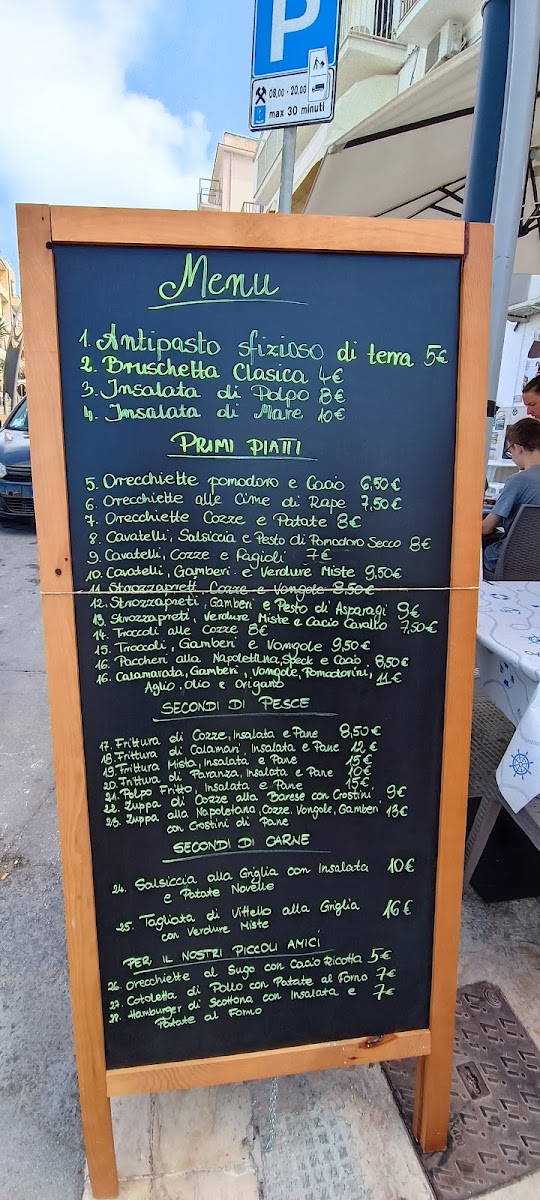 P
08,00 - 20,00
max 30 minuti
Menu
1. Antipasto sfizioso di terra 5€
2. Bruschetta Clasica 4€
3. Insalata di Polpo 8€
4. Insalata di Mare 10€
PRIMI PIATTI
5. Orecchiette pomodoro e Cacio 6,50€
6. Orecchiette alle Cime di Rape 7,50€
7. Orecchiette Cozze e Patate 8€
8. Cavatelli, Salsiccia e Pesto di Pomodoro Secco 8€
9. Cavatelli, Cozze e Fagioli 7€
10. Cavatelli, Gamberi e Verdure Miste 9,50€
11. Strozzapreti Cozze e Vongole 8,50€
12. Strozzapreti, Gamberi e Pesto di Asparagi 9€
13. Strozzapreti, Verdure Miste e Cacio Cavallo 7,50€
14. Troccoli alle Cozze 8€
15. Troccoli, Gamberi e Vongole 9,50€
16. Paccheri alla Napolettina, Speck e Cacio 8,50€
16. Calamarata, Gamberi, Vongole, Pomodorini, 11€
Aglio, Olio e Origano
SECONDI DI PESCE
17. Frittura di Cozze, Insalata e Pane 8,50€
18. Frittura di Calamari, Insalata e Pane 12€
19. Frittura Mista, Insalata e Pane 15€
20. Frittura di Paranza, Insalata e Pane 10€
21. Polpo Fritto, Insalata e Pane 15€
22. Zuppa di Cozze alla Barese con Crostini 9€
23. Zuppa alla Napoletana, Cozze, Vongole, Gamberi 13€
con Crostini di Pane
SECONDI DI CARNE
24. Salsiccia alla Griglia con Insalata 10€
e Patate Novelle
25. Tagliata di Vittello alla Griglia 16€
con Verdure Miste
PER IL NOSTRI PICCOLI AMICI
26. Orecchiette al Sugo con Cacio Ricotta 5€
27. Cotoletta di Pollo con Patate al Forno 7€
28. Hamburger di Scottona con Insalata e 7€
Patate al Forno